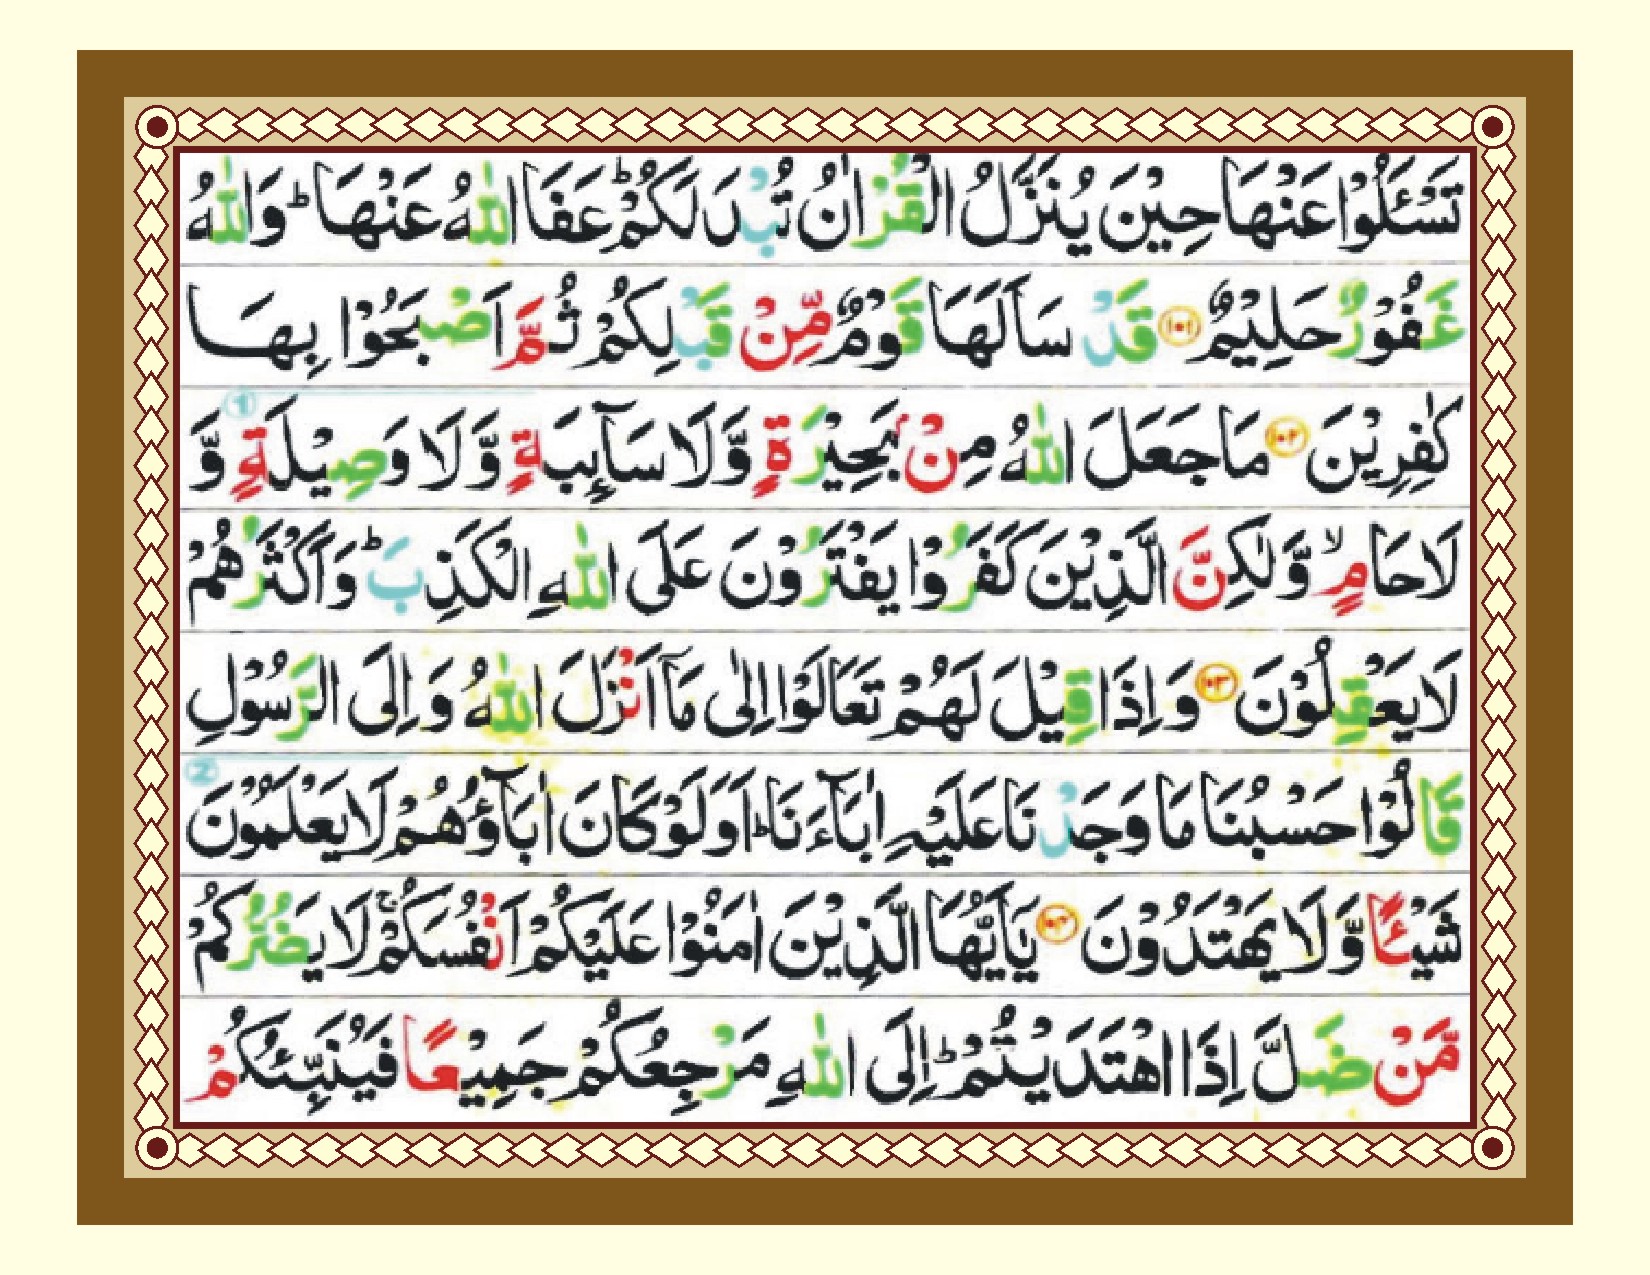 تَسْـَٔلُوْا عَنْهَا حِيْنَ يُنَزَّلُ الْقُرْاٰنُ تُبْدَ لَكُمْ ؕ عَفَا اللّٰهُ عَنْهَا ؕ وَاللّٰهُ
غَفُوْرٌ حَلِيْمٌ ﴿۱۰۱﴾ قَدْ سَاَلَهَا قَوْمٌ مِّنْ قَبْلِكُمْ ثُمَّ اَصْبَحُوْا بِهَا
كٰفِرِيْنَ ﴿۱۰۲﴾ مَا جَعَلَ اللّٰهُ مِنْۢ بَحِيْرَةٍ وَّلَا سَآىِٕبَةٍ وَّلَا وَصِيْلَةٍ وَّ
لَا حَامٍ ۙ وَّلٰكِنَّ الَّذِيْنَ كَفَرُوْا يَفْتَرُوْنَ عَلَى اللّٰهِ الْكَذِبَ ؕ وَاَكْثَرُهُمْ
لَا يَعْقِلُوْنَ ﴿۱۰۳﴾ وَاِذَا قِيْلَ لَهُمْ تَعَالَوْا اِلٰى مَاۤ اَنْزَلَ اللّٰهُ وَاِلَى الرَّسُوْلِ
قَالُوْا حَسْبُنَا مَا وَجَدْنَا عَلَيْهِ اٰبَآءَنَا ؕ اَوَلَوْ كَانَ اٰبَآؤُهُمْ لَا يَعْلَمُوْنَ
شَيْـًٔا وَّلَا يَهْتَدُوْنَ ﴿۱۰۴﴾ يٰۤاَيُّهَا الَّذِيْنَ اٰمَنُوْا عَلَيْكُمْ اَنْفُسَكُمْ ۚ لَا يَضُرُّكُمْ
مَّنْ ضَلَّ اِذَا اهْتَدَيْتُمْ ؕ اِلَى اللّٰهِ مَرْجِعُكُمْ جَمِيْعًا فَيُنَبِّئُكُمْ